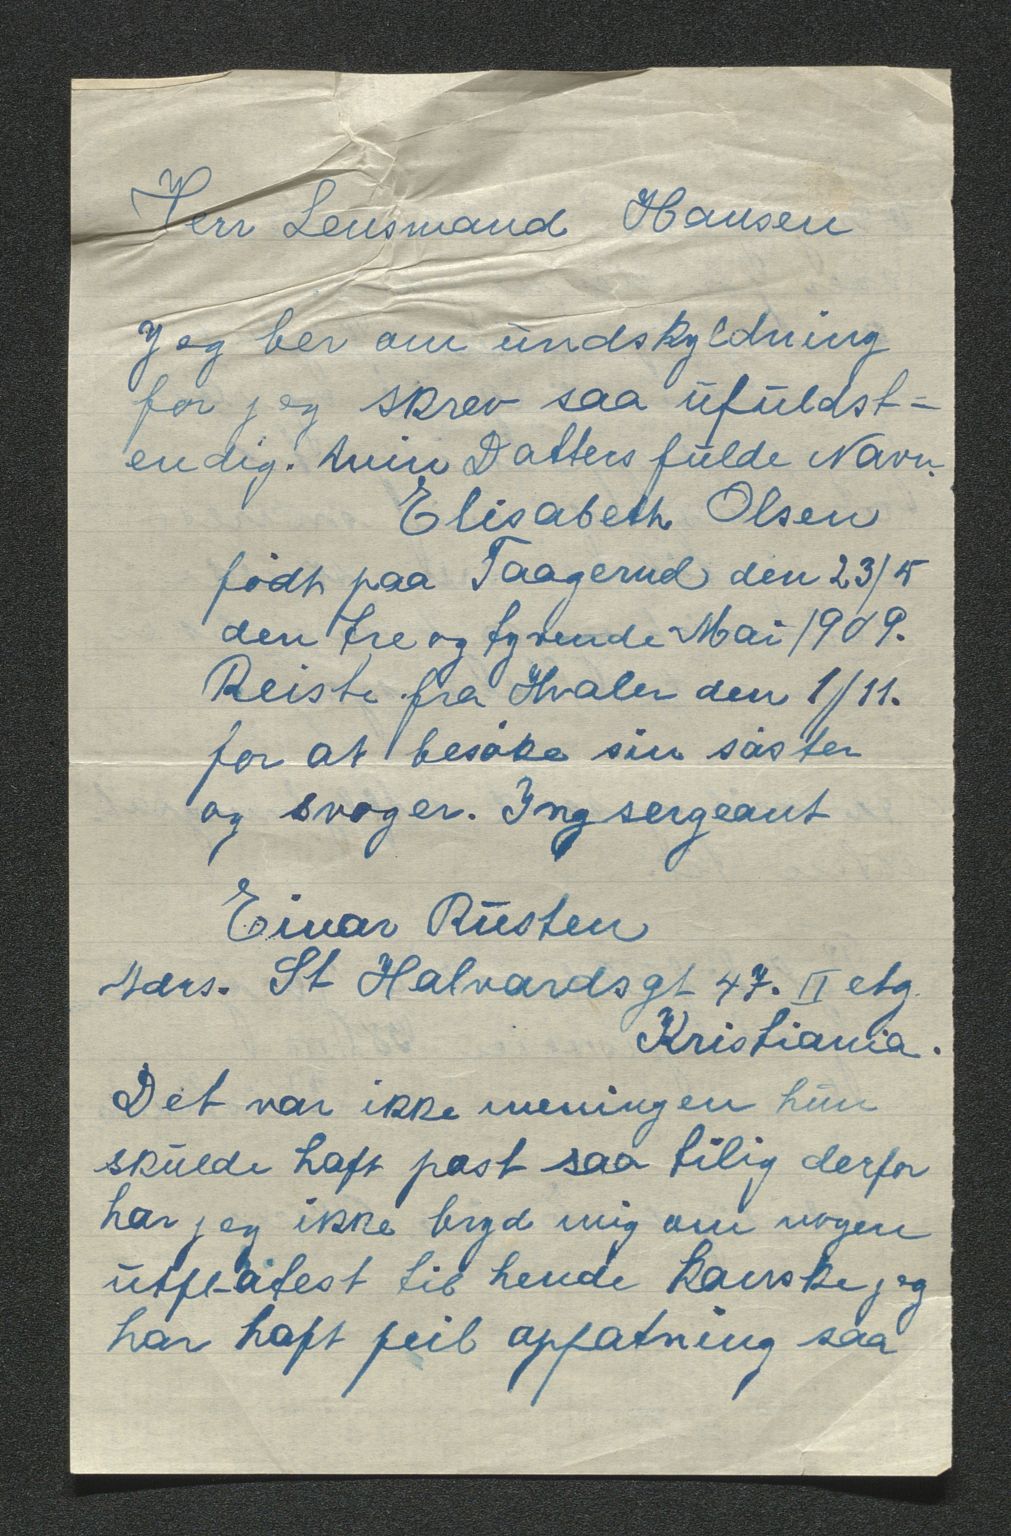 Herr Lensmand Hansen
Jeg ber om undskyldning
for jeg skrev saa ufuldst=
endig. Min Datters fulde Navn.
Elisabeth Olsen
født paa Taagerud den 23/5
den tre og tyvende Mai 1909.
Reiste fra Hvaler den 1/11.
for at besøke sin søster
og svoger. Ing sergeant
Einar Rusten
Adrs. St Halvardsgt 47. II etg.
Kristiania.
Det var ikke meningen hun
skulde haft post saa tilig derfor
har jeg ikke bryd mig om nogen
utfl-atest til hende kanske jeg
har haft feil opfatning saa